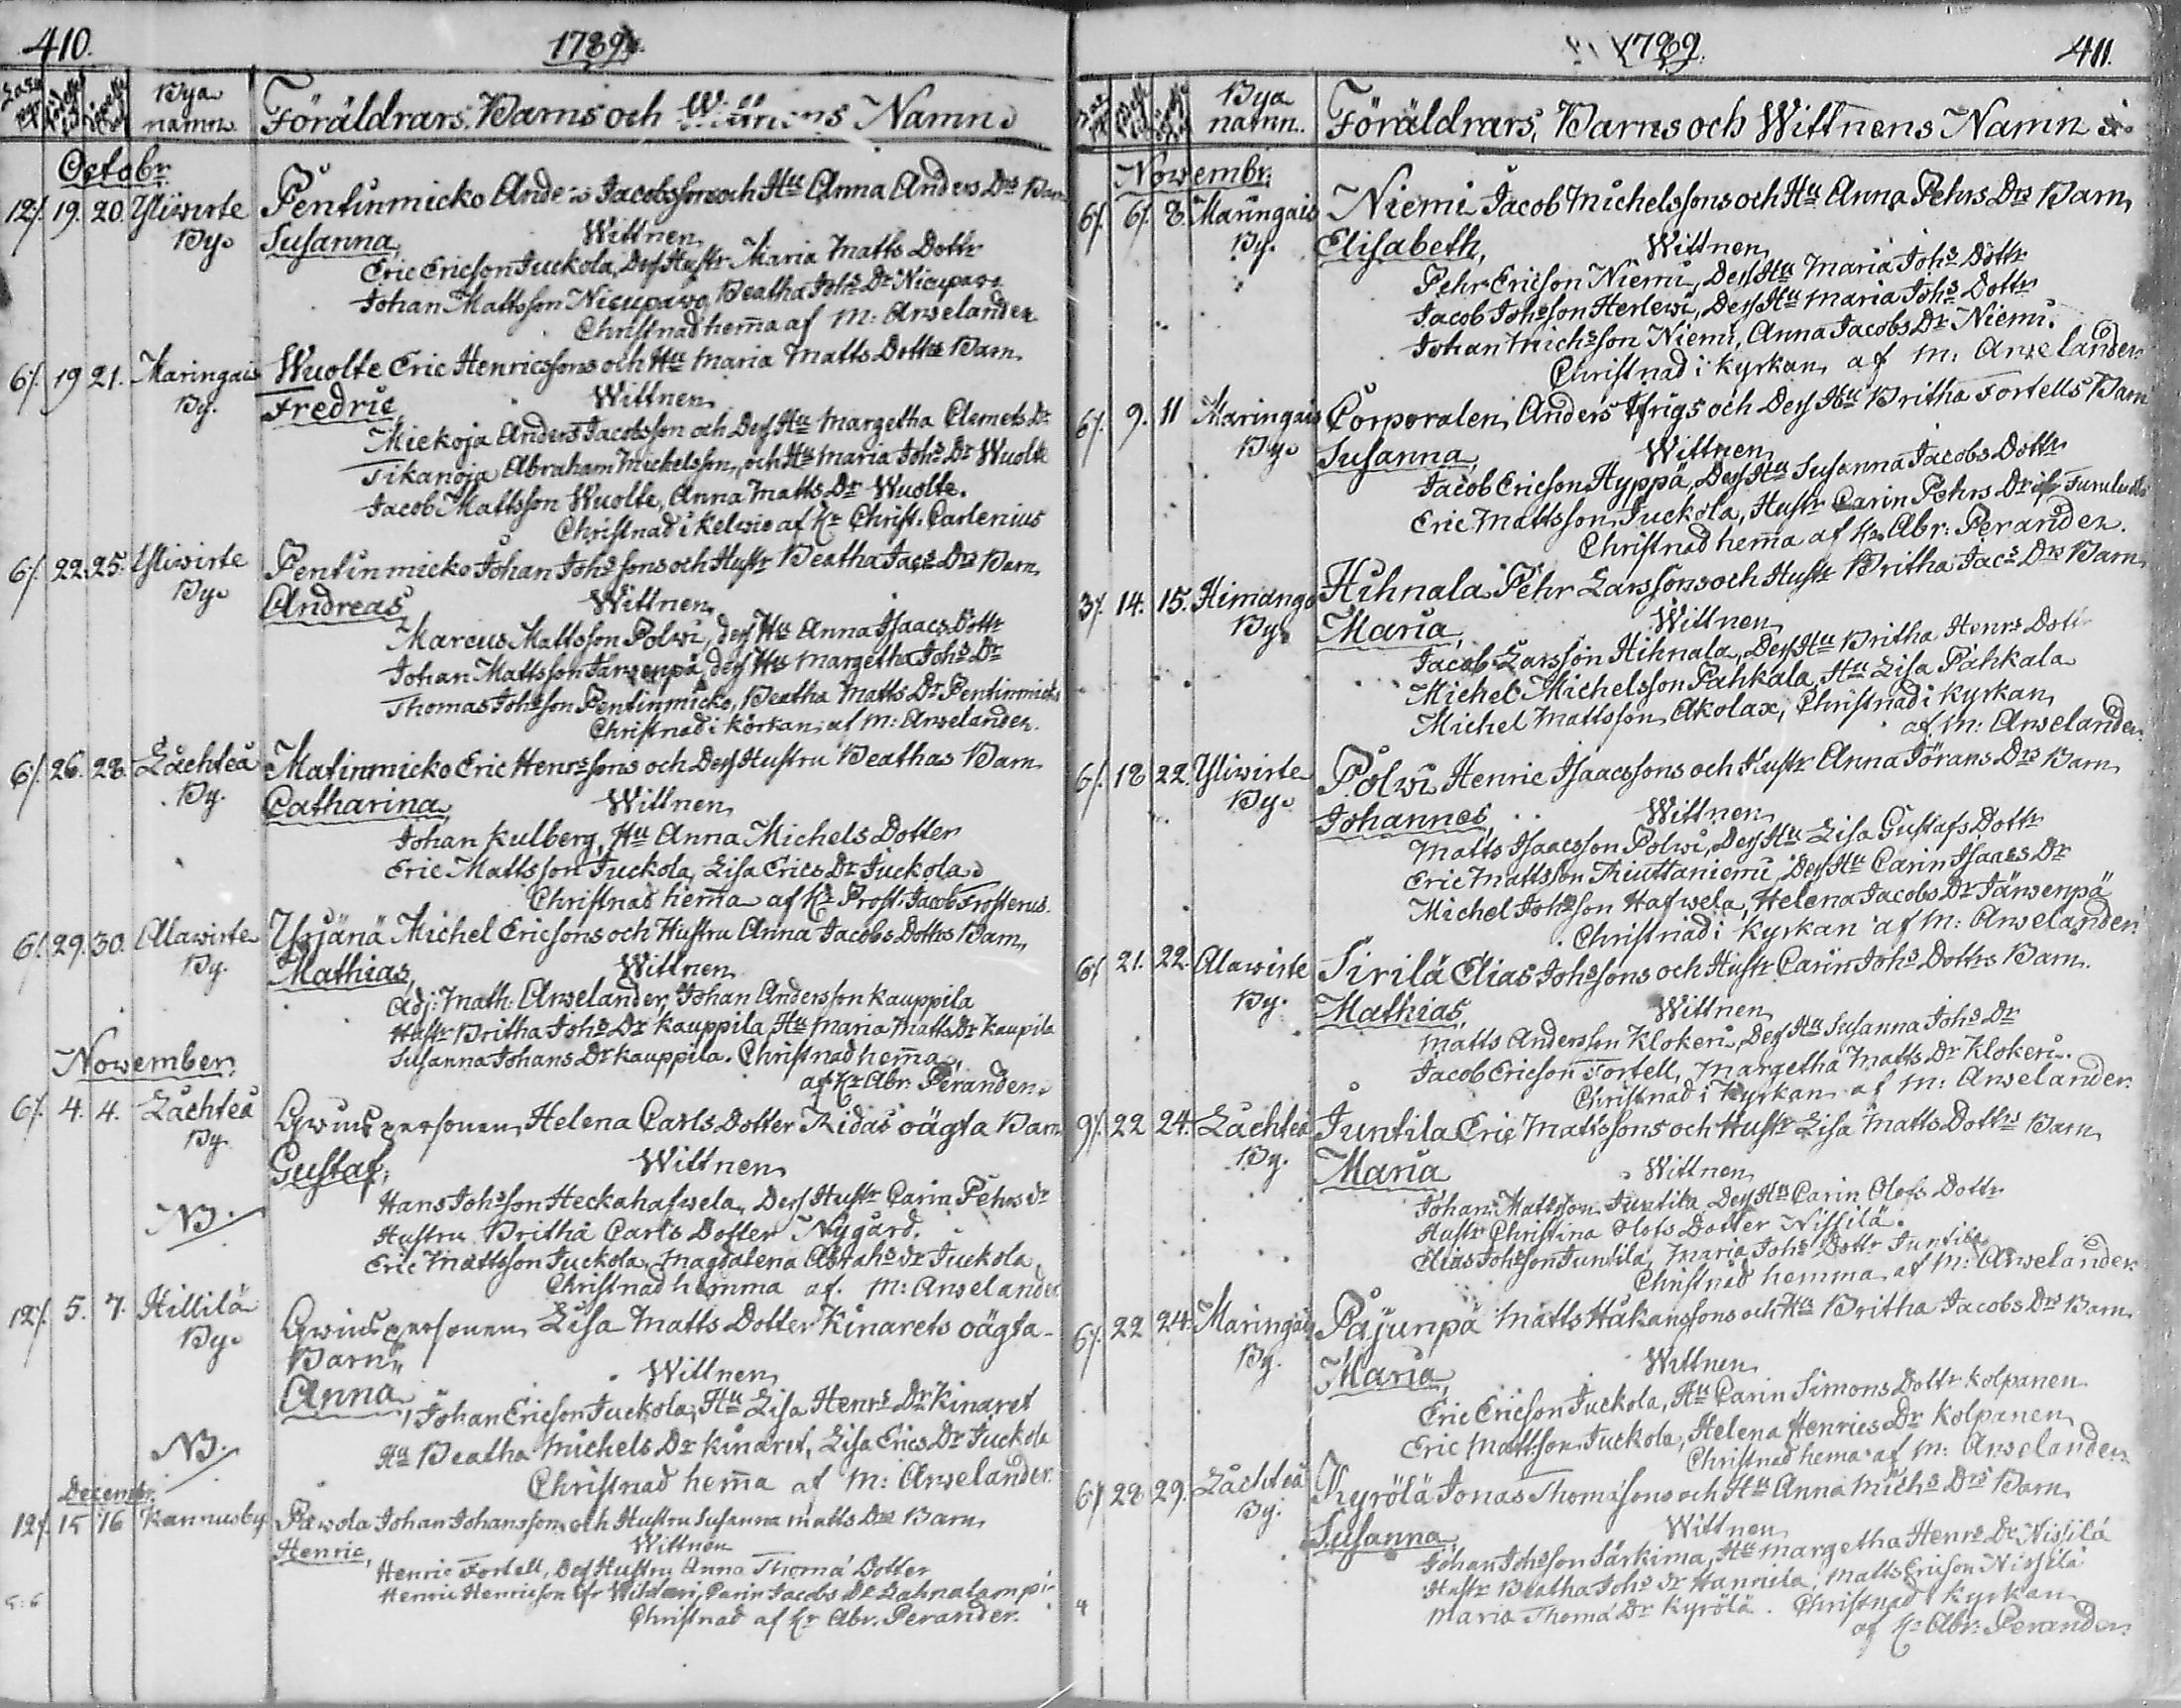 410.
1789.
Bya namn
Föräldrars, Barns och Wittnens Namn
Octobr
12/. 19. 20. Yliwirte By. Pentinmicko Anders Jacobssons och Hu Anna Anders Drs Barn
Susanna, Wittnen
Eric Ericson Juckola, Dess Hustr Maria Matts Dottr
Johan Mattsson Nicupawo Beatha Johs Dr Nicupawo
Christnad hem̅a af M: Arwelander
6/. 19 21. Maringais By. Wuolte Eric Henricssons och Hu Maria Matts Dotters Barn
Fredric, Wittnen
Mickoja Anders Jacobsson och Dess Hu Margetha Clemets Dr
Tikanoja Abraham Michelsson, och Hu Maria Johs Dr Wuolte
Jacob Mattsson Wuolte, Anna Matts Dr Wuolte.
Christnad i Kelwio af Hr Christ. Carlenius
6/. 22. 25. Yliwirte By. Pentinmicko Johan Johssons och Hustr Beatha Jacs Drs Barn
Andreas Wittnen
Marcus Mattsson Polwi, dess Hu Anna Isaacs Dottr
Johan Mattsson Järwenpä, dess Hu Margetha Johs Dr
Thomas Johsson Pentinmicko, Beatha Matts Dr Pentinmicko
Christnad i körkan af M: Arwelander.
6/. 26. 28. Låchteå By. Matinmicko Eric Henrssons och Dess Hustru Beathas Barn
Catharina, Wittnen
Johan Kulberg, Hu Anna Michels Dotter
Eric Mattsson Juckola, Lisa Erics Dr Juckola
Christnad hem̅a af Hr Prost. Jacob Frosterus.
6/. 29. 30. Alawirte By. Yrjänä Michel Ericsons och Hustru Anna Jacobs Dotters Barn
Mathias, Wittnen
Adj: Math: Arwelander, Johan Andersson Kauppila
Hustr Britha Johs Dr Kauppila, Hu Maria Matts Dr Kaupila
Susanna Johans Dr Kauppila. Christnad hem̅a,
af Hr Abr. Perander.
Nowember
6/. 4. 4. Låchteå By Qwinspersonen Helena Carls Dotter Ridas oägta Barn
Gustaf, Wittnen
Hans Johsson Heckahafwela, Dess Hustr Carin Pehrs Dr
NB. Hustru Britha Carls Dotter Nygård.
Eric Mattsson Juckola, Magdalena Abrahs Dr Juckola,
Christnad hemma af M: Arwelander
12/. 5. 7. Hillilä By. Qwinspersonen Lisa Matts Dotter Kinarets oägta
Barn
Anna, Wittnen
Johan Ericson Juckola, Hu Lisa Henrs Dr Kinaret
NB. Hu Beatha Michels Dr Kinaret, Lisa Erics Dr Juckola
Christnad hem̅a af M: Arwelander.
Decembr
12/. 15 16 Kannusby Pawola Johan Johanssons och Hustru Susanna Matts Drs Barn
Henric, Wittnen
Henric Fortell, Dess Hustru Anna Thomæ Dotter
Henric Henricson, Carin Jacobs Dr Lahnalampi
Christnad af Hr Abr. Perander.
1789.
411.
Bya namn.
Föräldrars, Barns och Wittnens Namn
Nowembr.
6/. 6/. 8. Maringais By. Niemi Jacob Michelssons och Hu Anna Pehrs Drs Barn
Elisabeth, Wittnen
Pehr Ericson Niemi, Dess Hu Maria Johs Dottr
Jacob Johsson Herlewi, Dess Hu Maria Johs Dottr
Johan Michsson Niemi, Anna Jacobs Dr Niemi.
Christnad i kyrkan af M: Arwelander
6/. 9. 11 Maringais By. Corporalen Anders Ifrigs och Dess Hu Britha Fortells Barn
Susanna, Wittnen
Jacob Ericson Hyppä, Dess Hu Susanna Jacobs Dottr
Eric Mattsson Juckola, Hustr Carin Pehrs Dr
Christnad hem̅a af Hr Abr: Perander.
3/. 14. 15. Himango By Hihnala Pehr Larssons och Hustr Britha Jacs Drs Barn
Maria, Wittnen
Jacob Larsson Hihnala, Dess Hu Britha Henrs Dottr
Michel Michelsson Pahkala, Hu Lisa Pahkala
Michel Mattsson Akolax, Christnad i kyrkan
af M: Arwelander.
6/. 18 22. Yliwirte By. Polwi Henric Isaacssons och Hustr Anna Jörans Drs Barn
Johannes Wittnen
Matts Isaacsson Polwi, Dess Hu Lisa Gustafs Dottr
Eric Mattsson Thiuttaniemi Dess Hu Carin Isaacs Dr
Michel Johsson Hafwela, Helena Jacobs Dr Järwenpä
Christnad i kyrkan af M: Arwelander.
6/ 21. 22. Alawirte By. Sirilä Elias Johssons och Hustr Carin Johs Dotters Barn.
Mathias, Wittnen
Matts Andersson Klokeri, Dess Hu Susanna Johs Dr
Jacob Ericson Fortell, Margetha Matts Dr Klokeri.
Christnad i kyrkan af M: Arwelander.
9/. 22 24. Låchteå By. Juntila Eric Mattssons och Hustr Lisa Matts Dotters Barn
Maria Wittnen
Johan Mattsson Juntila, Dess Hu Carin Olofs Dottr
Hustr Christina Olofs Dotter Nissilä.
Elias Johsson Juntila, Maria Johs Dottr Juntila
Christnad hemma af M: Arwelander.
6/. 22 24. Maringais By. Pajunpä Matts Håkanssons och Hu Britha Jacobs Drs Barn
Maria, Wittnen
Eric Ericson Juckola, Hu Carin Simons Dottr Kolpanen
Eric Mattsson Juckola, Helena Henrics Dr Kolpanen
Christnad hema af M: Arwelander
6/ 28 29. Låchteå By. Kyrölä Jonas Thomæsons och Hu Anna Michs Drs Barn
Susanna, Wittnen
Johan Johsson Särkima, Hu Margetha Henrs Dr Nissilä
Hustr Beatha Johs Dr Hannila, Matts Ericson Nissilä
Maria Thomæ Dr Kyrölä. Christnad i kyrkan
af Hr Abr: Perander.